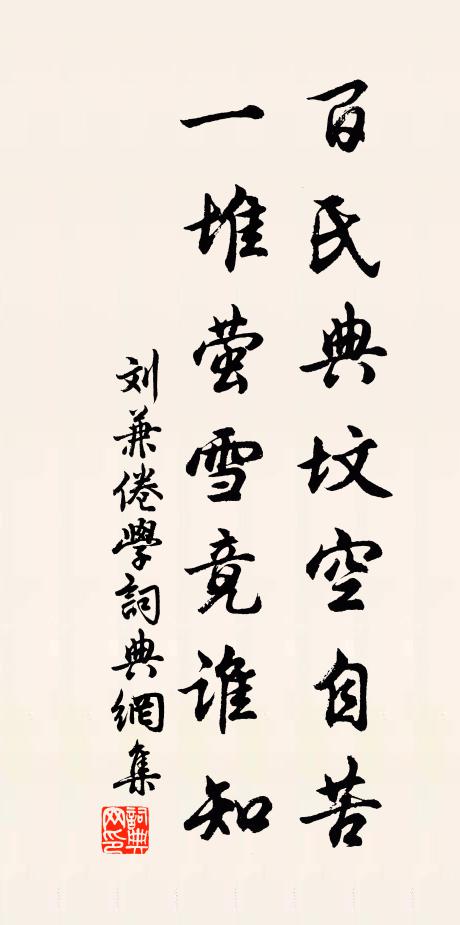 百氏典坟空自苦
一堆萤雪竟谁知
刘兼倦學詞典網集
詞典网印